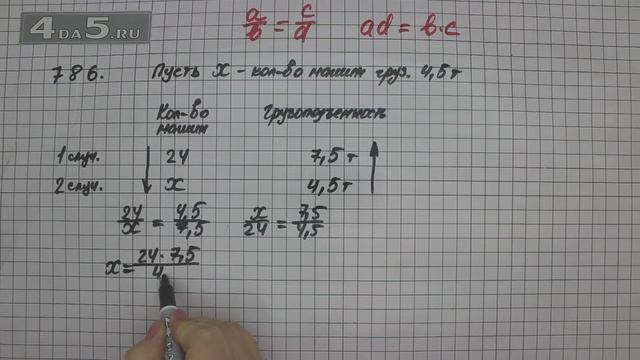 4DA5.RU
a/b = c/d ad = b·c
786. Пусть x - кол-во машин груз. 4,5 т
Кол-во машин Грузоподъемность
1 случ. 24 7,5 т
2 случ. x 4,5 т
24/x = 4,5/7,5 x/24 = 7,5/4,5
x = 24·7,5/4